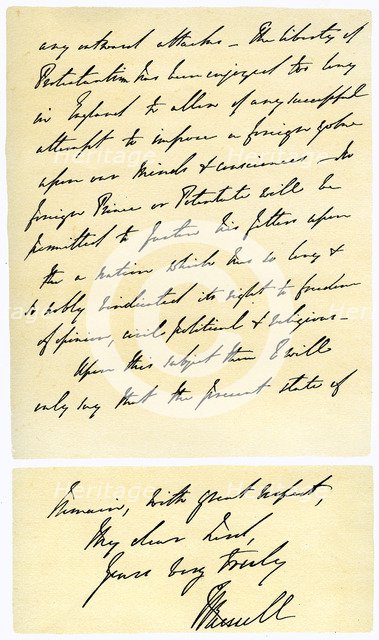 any outward attacks — The liberty of
Protestantism has been enjoyed too long
in England to allow of any successful
attempt to impose a foreign yoke
upon our minds & consciences — No
foreign Prince or Potentate will be
permitted to fasten his fetters upon
a nation which has so long &
so nobly vindicated its right to freedom
of opinion, civil political & religious —
Upon this subject then I will
only say that the present state of
Remain, with great respect,
My dear Lord,
Yours very truly
J Russell
Heritage